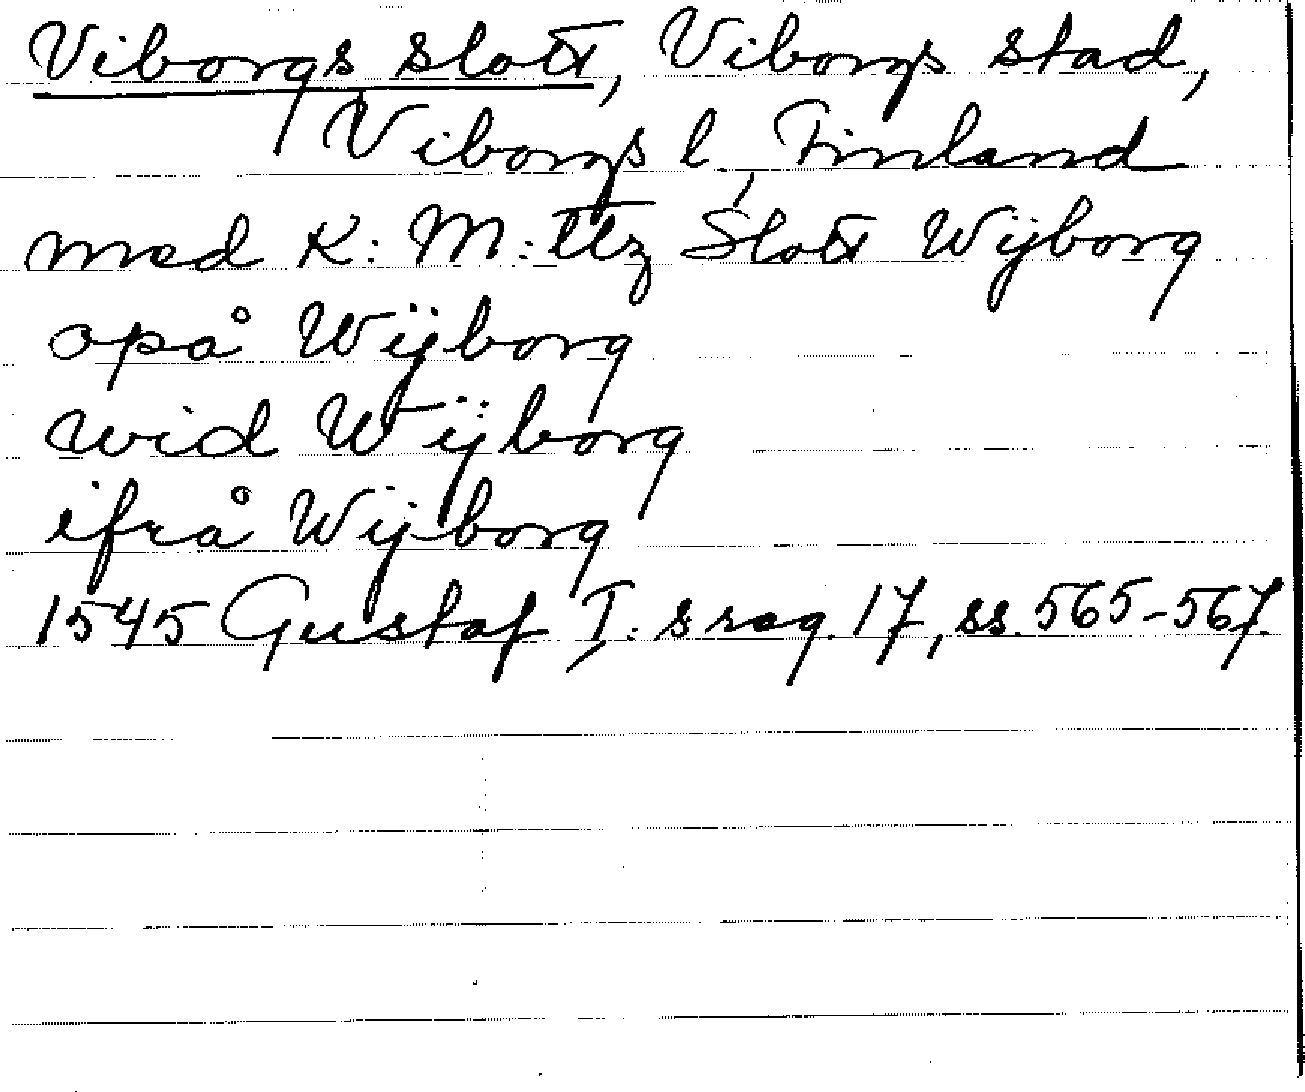 Viborgs slott, Viborgs stad,
Viborgs l, Finland
med K: M:ttz Slott Wijborg
opå Wijborg
wid Wijborg
ifrå Wijborg
1545 Gustaf I:s reg. 17, ss. 565-567.